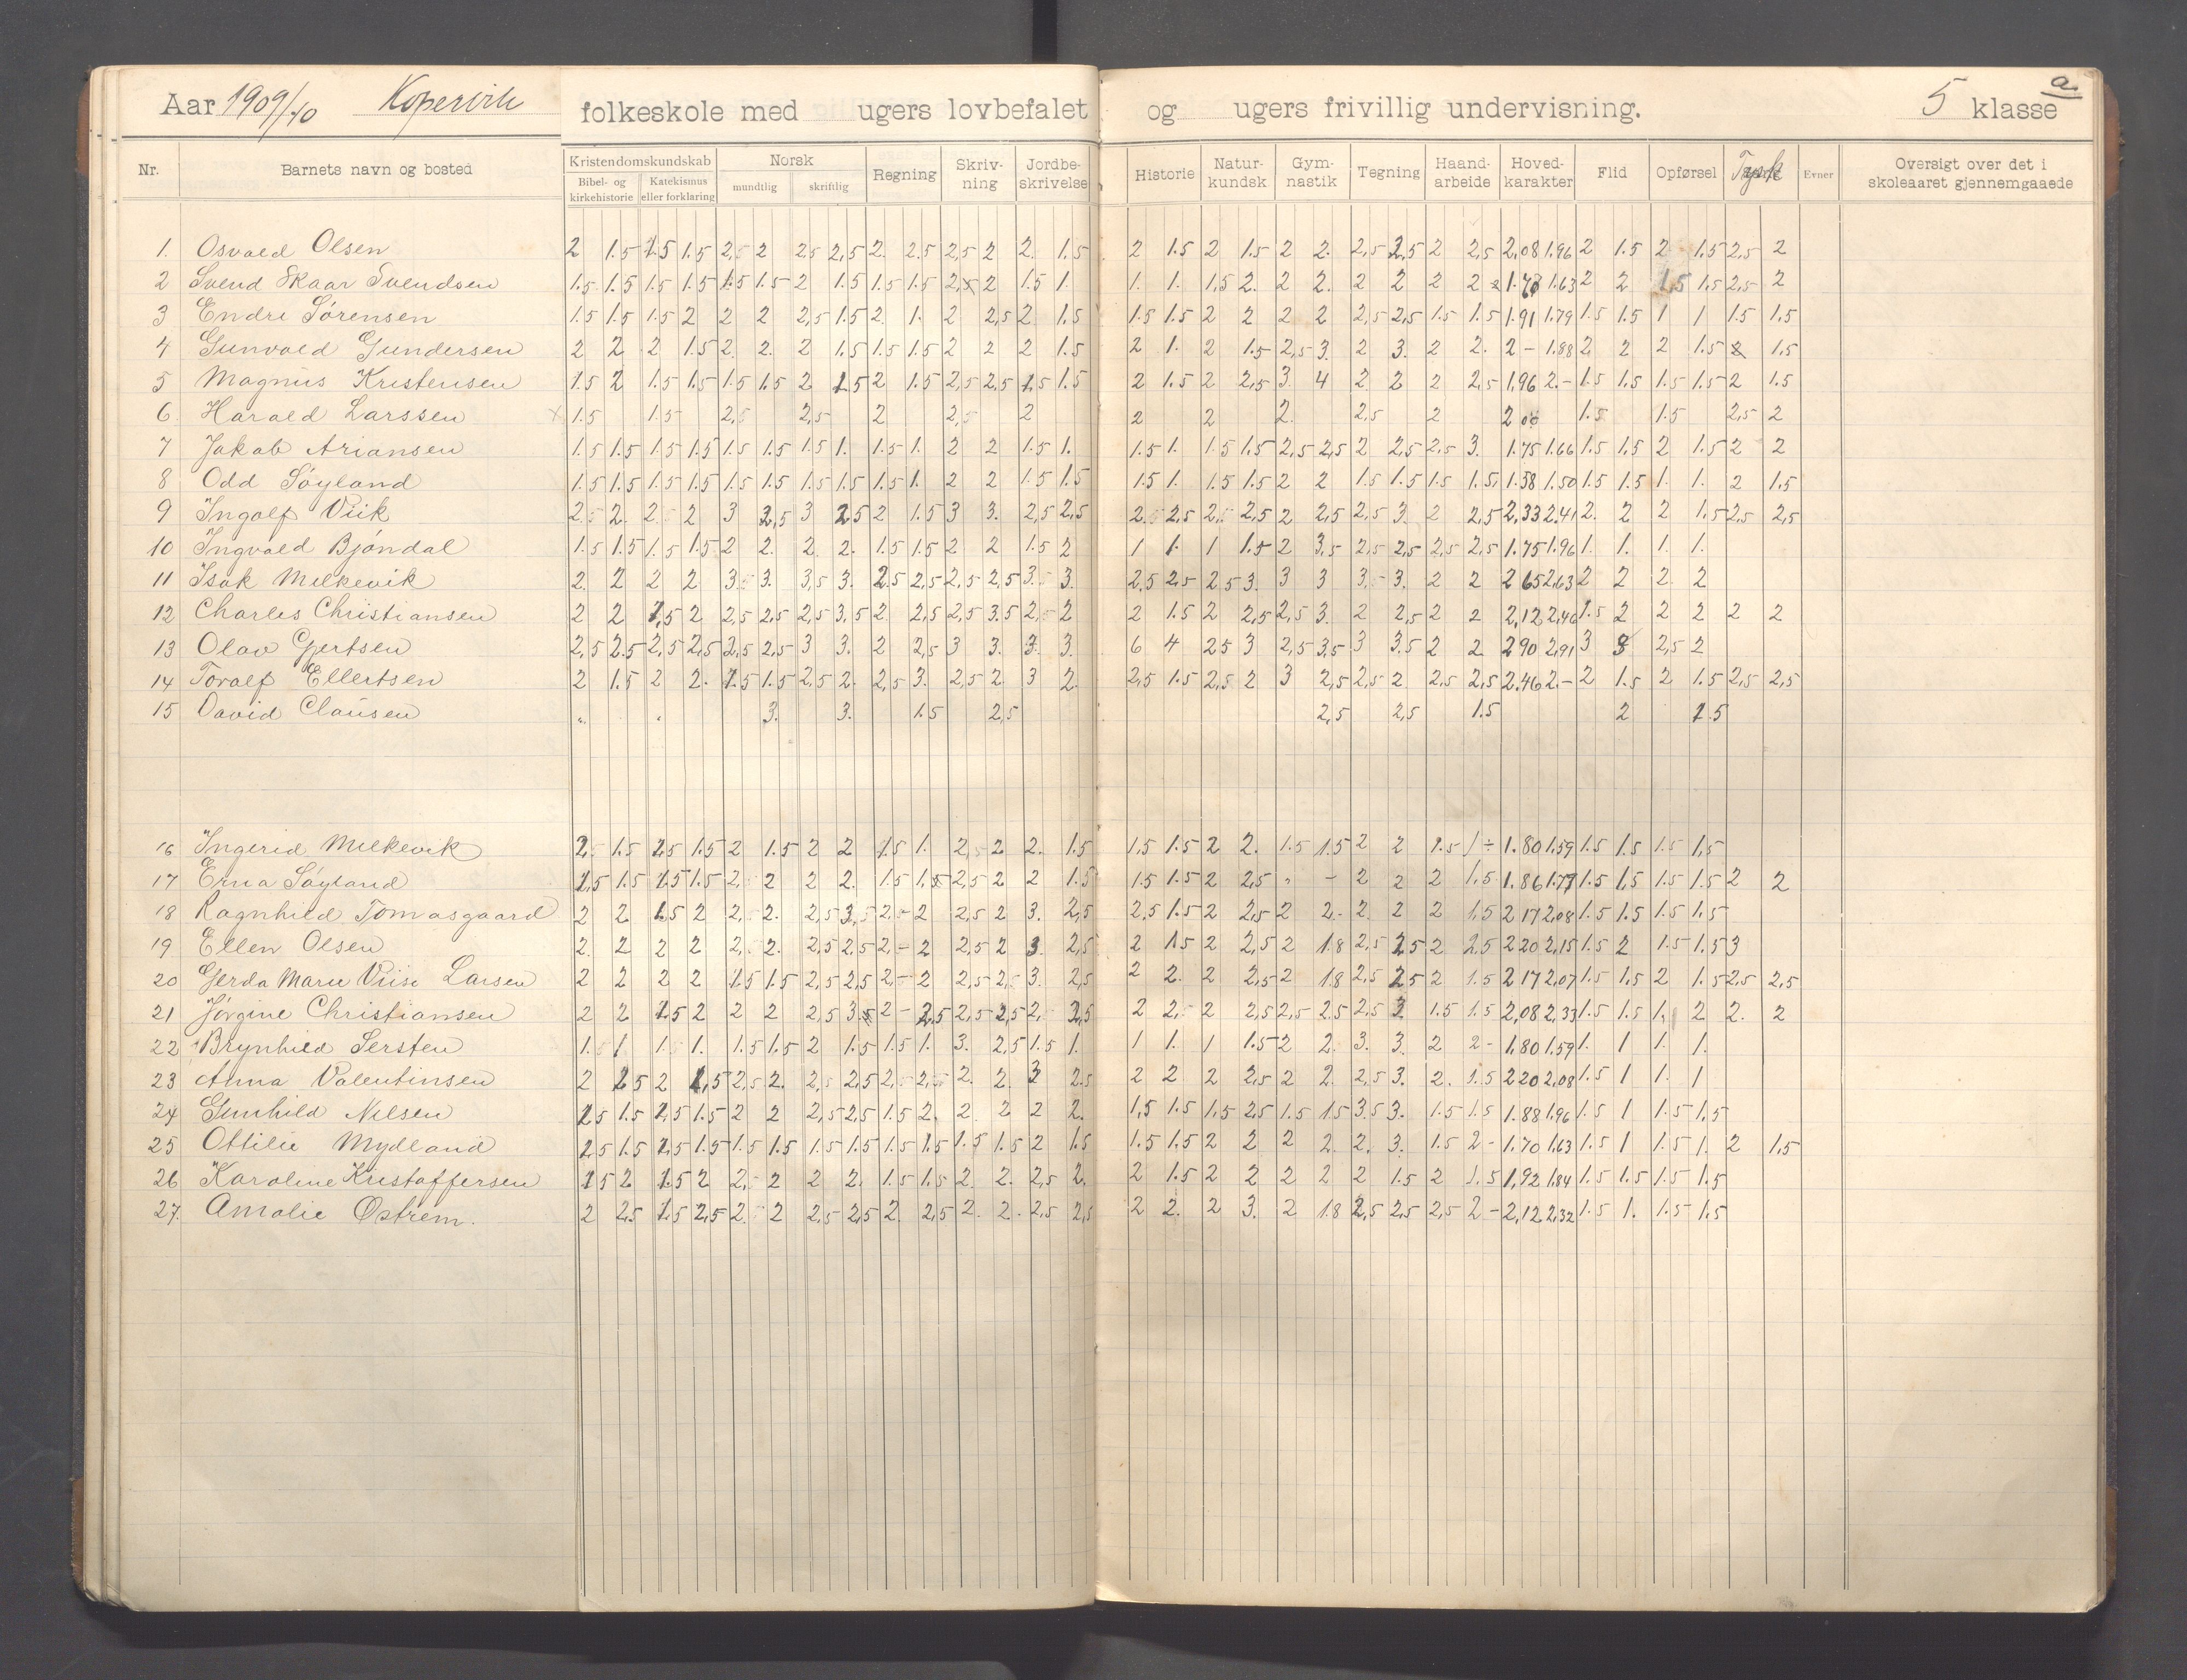 Aar 1909/10 Kopervik folkeskole med ugers lovbefalet og ugers frivillig undervisning. 5 klasse a.
Nr. Barnets navn og bosted Kristendomskundskab Norsk Regning Skriv-ning Jordbe-skrivelse Historie Natur-kundsk. Gym-nastik Tegning Haand-arbeide Hoved-karakter Flid Opførsel Tysk Evner Oversigt over det i skoleaaret gjennemgaaede
Bibel- og kirkehistorie Katekismus eller forklaring mundtlig skriftlig
1. Osvald Olsen 2 1.5 1.5 1.5 2,5 2 2,5 2,5 2. 2.5 2,5 2 2. 1.5 2 1.5 2 1.5 2 2. 2,5 2,5 2 2,5 2,08 1.96 2 1.5 2 1.5 2,5 2
2 Svend Skaar Svendsen 1.5 1.5 1.5 1.5 1.5 1.5 2 1.5 1.5 1.5 2,5 2 1.5 1. 1. 1. 1,5 2. 2 2. 2 2 2 2 1.63 2 2 1,5 1.5 2,5 2
3 Endre Sørensen 1.5 1.5 1.5 2 2 2 2,5 1.5 2. 1. 2 2,5 2 1.5 1.5 1.5 2 2 2 2 2,5 2,5 1.5 1.5 1.91 1.79 1.5 1.5 1 1 1.5 1.5
4 Gunvald Gundersen 2 2 2 1.5 2. 2. 2 1.5 1.5 1.5 2 2 2 1.5 2 1. 2 1.5 2,5 3. 2 3. 2 2. 2 - 1.88 2 2 2 1.5 2 1.5
5 Magnus Kristensen 1.5 2 1.5 1.5 1.5 1.5 2 1.5 2 1.5 2,5 2,5 1.5 1.5 2 1.5 2 2,5 3. 4 2 2 2 2,5 1,96 2.- 1.5 1.5 1.5 1.5 2 1.5
6. Harald Larssen x 1.5 1.5 2,5 2,5 2 2,5 2 2 2 2. 2,5 2 2 00 1.5 1.5 2,5 2
7 Jakob Ariansen 1.5 1.5 1.5 1.5 1.5 1.5 1.5 1. 1.5 1. 2 2 1.5 1. 1.5 1. 1.5 1.5 2,5 2,5 2 2,5 2,5 3. 1.75 1.66 1.5 1,5 2 1.5 2 2
8 Odd Søyland 1.5 1.5 1.5 1.5 1.5 1.5 1.5 1.5 1.5 1. 2 2 1.5 1.5 1.5 1. 1.5 1.5 2 2 1.5 1.5 1.5 1.5 1.58 1.50 1.5 1.5 1. 1. 2 1.5
9 Ingolf Viik 2.5 2. 2.5 2 3 2,5 3 2.5 2 1.5 3 3. 2,5 2,5 2.5 2,5 2,5 2,5 2 2,5 2,5 3. 2 2,5 2,33 2.41 2. 2 2 1.5 2,5 2,5
10 Ingvald Bjøndal 1.5 1.5 1.5 1.5 2 2. 2. 2. 1.5 1.5 2 2 1.5 2 1 1. 1 1.5 2 3,5 2,5 2,5 2,5 2,5 1.75 1.96 1. 1. 1. 1.
11 Isak Melkevik 2. 2 2 2 3.5 3. 3,5 3. 2.5 2,5 2,5 2,5 3.5 3. 2,5 2,5 2,5 3. 3 3 3.5 3. 2 2 2 65 2,63 2 2 2. 2
12 Charles Christiansen 2 2 1,5 2 2,5 2,5 2,5 3,5 2 2,5 2,5 3.5 2,5 2 2 1.5 2 2,5 2,5 3. 2 2,5 2 2 2,12 2,46 1.5 2 2 2 2 2
13 Olav Gjertsen 2,5 2.5 2,5 2,5 2,5 2,5 3 3. 2 2,5 3 3. 3. 3. 6 4 2 5 3 2,5 3.5 3 3.5 2 2 2 90 2,91 3 3 2,5 2
14 Toralf Ellertsen 2 1.5 2 2. 1.5 1.5 2,5 2. 2,5 3. 2,5 2 3 2 2,5 1.5 2,5 2 3 2,5 2,5 2 2,5 2,5 2.46 2.- 2 1.5 2 1.5 2,5 2,5
15 David Clausen " " 3. 3. 1.5 2,5 2,5 2,5 1.5 2 1.5
16 Ingerid Melkevik 2.5 1.5 1.5 1.5 2 1.5 2 2 1.5 1. 2,5 2 2. 1.5 1,5 1.5 2 2. 1.5 1.5 2 2 1.5 1 ÷ 1.80 1.59 1.5 1.5 1.5 1,5
17 Erna Søyland 1,5 1.5 1.5 1.5 2,5 2 2 2. 1.5 1,5 2,5 2 2 1.5 1.5 1.5 2 2,5 " - 2 2 2 1.5 1.86 1.77 1.5 1,5 1.5 1.5 2 2
18 Ragnhild Tomasgaard 2 2 1.5 2 2,5 2. 2,5 3,5 2.- 2 2,5 2 3. 2,5 2,5 1.5 2 2,5 2 2.- 2. 2 2 1.5 2 17 2,08 1.5 1.5 1.5 1,5
19 Ellen Olsen 2. 2 2 2 2,5 2. 2,5 2,5 2,- 2 2,5 2 3. 2,5 2 1.5 2 2,5 2 1.8 2,5 2.5 2 2.5 2 20 2,15 1.5 2 1.5 1.5 3
20 Gerda Marie Viise Larsen 2 2 2 2 1.5 1.5 2,5 2,5 2,- 2 2,5 2,5 3. 2,5 2 2. 2 2,5 2 1.8 2,5 2.5 2 1.5 2 17 2,07 1.5 1.5 2 1.5 2,5 2,5
21 Jørgine Christiansen 2 2 1.5 2 2 2 2,5 3.5 2 - 2,5 2,5 2,5 2,5 2,5 2 2,5 2 2,5 2,5 2.5 2,5 3 1.5 1.5 2,08 2,33 1.5 1.5 1. 2 2. 2
22 Brynhild Sersten 1.5 1 1.5 1. 1.5 1.5 2 1.5 1.5 1. 3. 2,5 1.5 1. 1 1. 1 1.5 2 2. 3. 3. 2 2- 1.80 1.59 1. 1 1. 1.
23 Anna Valentinsen 2 1.5 2 1,5 2,5 2. 2,5 2,5 2,5 2,5 2. 2. 3 2.5 2 2 2 2,5 2 2. 2,5 3. 2. 1.5 2 20 2,08 1.5 1 1. 1
24 Gunhild Nilsen 1.5 1.5 1.5 1.5 2 2 2,5 2,5 1.5 2. 2. 2 2 2. 1,5 1.5 1,5 2,5 1.5 1.5 3.5 3. 1.5 1.5 1.88 1.96 1.5 1 1.5 1.5
25 Ottilie Mydland 1.5 1.5 1.5 1.5 1.5 1.5 1.5 1.5 1.5 1.5 1.5 1.5 2 1.5 1.5 1.5 2 2 2 2. 2. 3. 1.5 2 - 1.70 1.63 1.5 1 1.5 1. 2 1,5
26 Karoline Kristoffersen 1.5 2 1.5 2 2,5 2 2 2. 1.5 1.5 2. 2. 2,5 2. 2 1.5 2 2 2 2 2 1.5 2 1.5 1,92 1.84 1.5 1.5 1.5 1.5
27. Amalie Østrem. 2 2,5 1.5 2,5 2.5 2 2,5 2,5 2. 2,5 2. 2. 2,5 2,5 2 2. 2 3. 2 1.8 2,5 2,5 2,5 2 - 2,12 2,32 1.5 1. 1.5 1.5